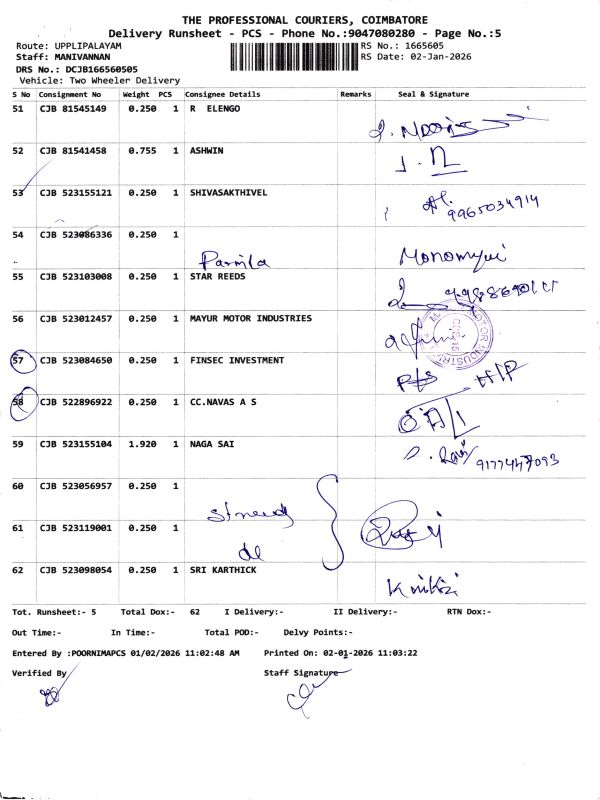 THE PROFESSIONAL COURIERS, COIMBATORE
Delivery Runsheet - PCS - Phone No.:9047080280 - Page No.:5
Route: UPPLIPALAYAM RS No.: 1665605
Staff: MANIVANNAN RS Date: 02-Jan-2026
DRS No.: DCJB166560505
Vehicle: Two Wheeler Delivery
S No Consignment No Weight PCS Consignee Details Remarks Seal & Signature
51 CJB 81545149 0.250 1 R ELENGO
52 CJB 81541458 0.755 1 ASHWIN
53 CJB 523155121 0.250 1 SHIVASAKTHIVEL
9965034914
54 CJB 523086336 0.250 1
Pamila
55 CJB 523103008 0.250 1 STAR REEDS
56 CJB 523012457 0.250 1 MAYUR MOTOR INDUSTRIES
57 CJB 523084650 0.250 1 FINSEC INVESTMENT
58 CJB 522896922 0.250 1 CC.NAVAS A S
59 CJB 523155104 1.920 1 NAGA SAI
9177447093
60 CJB 523056957 0.250 1
61 CJB 523119001 0.250 1
62 CJB 523098054 0.250 1 SRI KARTHICK
Tot. Runsheet:- 5 Total Dox:- 62 I Delivery:- II Delivery:- RTN Dox:-
Out Time:- In Time:- Total POD:- Delvy Points:-
Entered By :POORNIMAPCS 01/02/2026 11:02:48 AM Printed On: 02-01-2026 11:03:22
Verified By Staff Signature